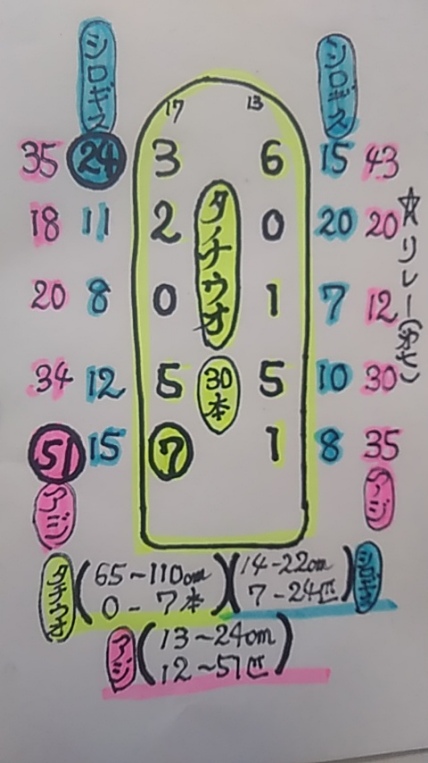 シロギス シロギス
17 13
35 24 3 6 15 43
18 11 2 0 20 20
20 8 0 1 7 12
34 12 5 5 10 30
51 15 7 1 8 35
タチウオ
30本
☆リレー
アジ アジ
タチウオ (65~110cm 0-7本) (14-22cm 7-24匹) シロギス
アジ (13~24cm 12~51匹)